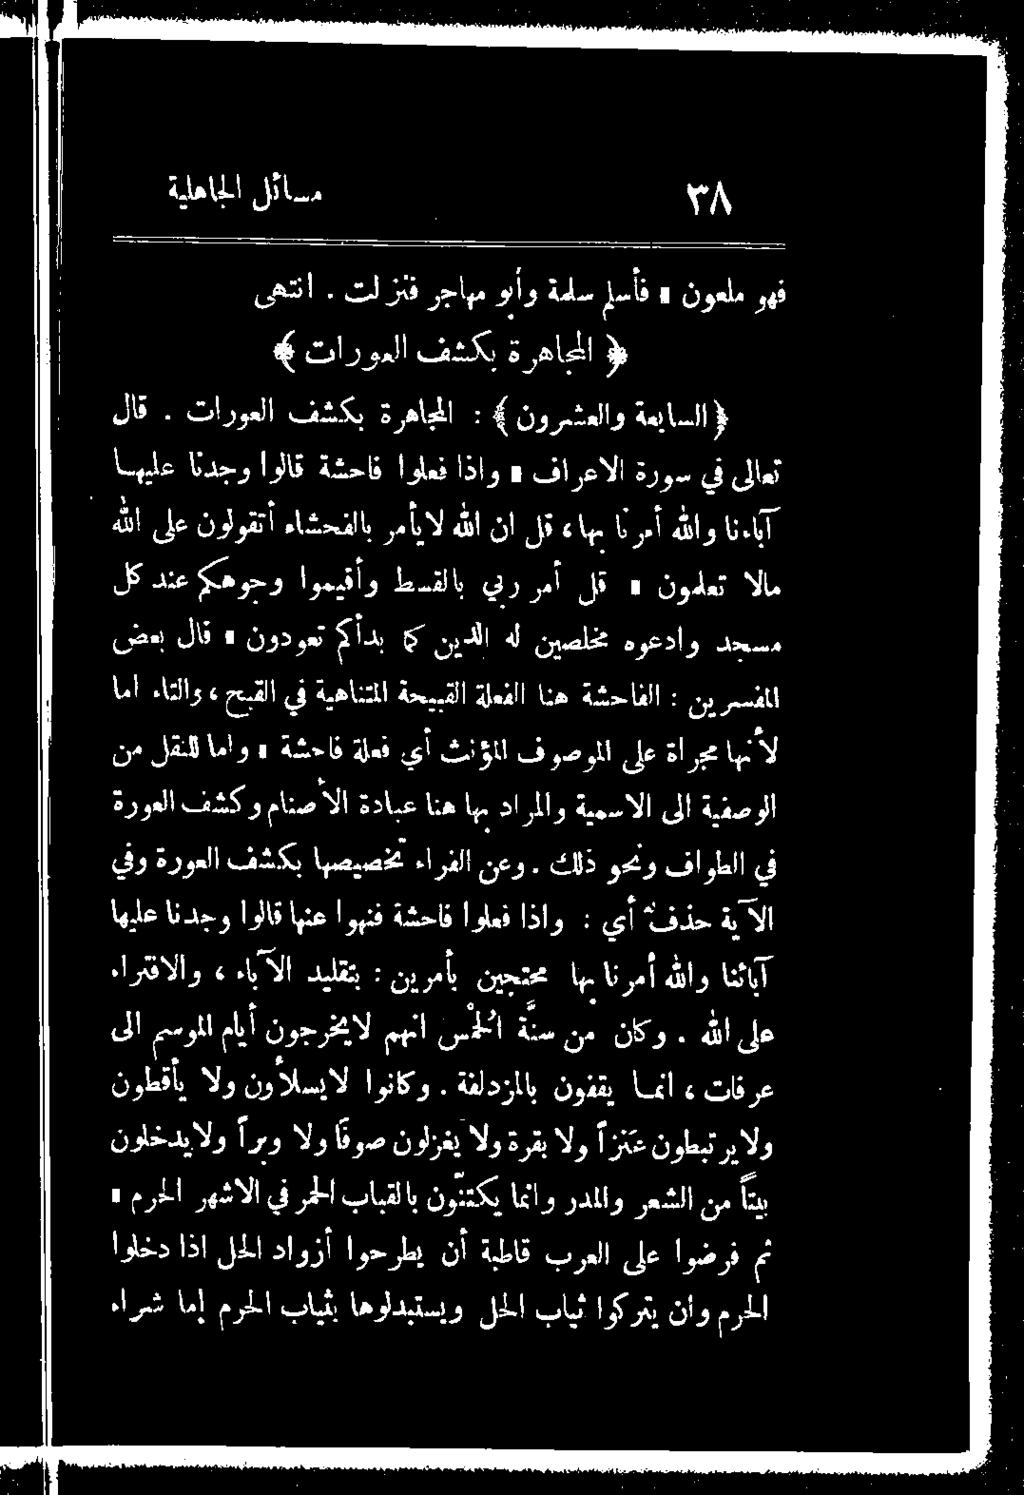 ٣٨ مسائل الجاهلية
فهو ملعون ، فأسلم سلمة وأبو مهاجر فنزلت . انتهى
﴿ المجاهرة بكشف العورات ﴾
﴿السابعة والعشرون﴾ : المجاهرة بكشف العورات . قال
تعالى في سورة الاعراف « واذا فعلوا فاحشة قالوا وجدنا عليهـا
آباءنا والله أمرنا بها ، قل ان الله لايأمر بالفحشاء أتقولون على الله
مالا تعلمون « قل أمر ربي بالقسط وأقيموا وجوهكم عند كل
مسجد وادعوه مخلصين له الدين كما بدأكم تعودون » قال بعض
المفسرين : الفاحشة هنا الفعلة القبيحة المتناهية في القبح ، والتاء اما
لأنها مجراة على الموصوف المؤنث أي فعلة فاحشة ، واما للنقل من
الوصفية الى الاسمية والمراد بها هنا عبادة الأصنام وكشف العورة
في الطواف ونحو ذلك . وعن الفراء تخصيصها بكشف العورة وفي
الآية حذف أي : واذا فعلوا فاحشة فنهوا عنها قالوا وجدنا عليها
آبائنا والله أمرنا بها محتجين بأمرين : بتقليد الآباء ، والافتراء
على الله . وكان من سنَّة الحُمْس انهم لايخرجون أيام الموسم الى
عرفات ، انمـا يقفون بالمزدلفة . وكانوا لايسلأون ولا يأقطون
ولايرتبطون عَنزاً ولا بقرة ولا يغزلون صوفا ولا وبراً ولايدخلون
بيتاً من الشعر والمدر وانما يكتنّون بالقباب الحمر في الاشهر الحرم ،
ثم فرضوا على العرب قاطبة أن يطرحوا أزواد الحل اذا دخلوا
الحرم وان يتركوا ثياب الحل ويستبدلوها بثياب الحرم إما شراء